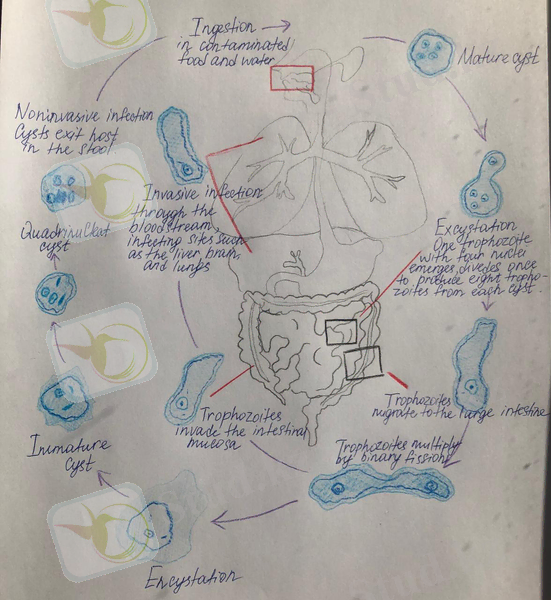 Ingestion
in contaminated
food and water
Mature cyst
Noninvasive infection
Cysts exit host
in the stool
Invasive infection
through the
bloodstream,
infecting sites such
as the liver, brain,
and lungs
Excystation
One trophozoite
with four nuclei
emerges, divides once
to produce eight tropho-
zoites from each cyst.
Quadrinucleat
cyst
Trophozoites
migrate to the large intestine
Trophozoites
invade the intestinal
mucosa
Trophozoites multiply
by binary fission
Immature
cyst
Encystation